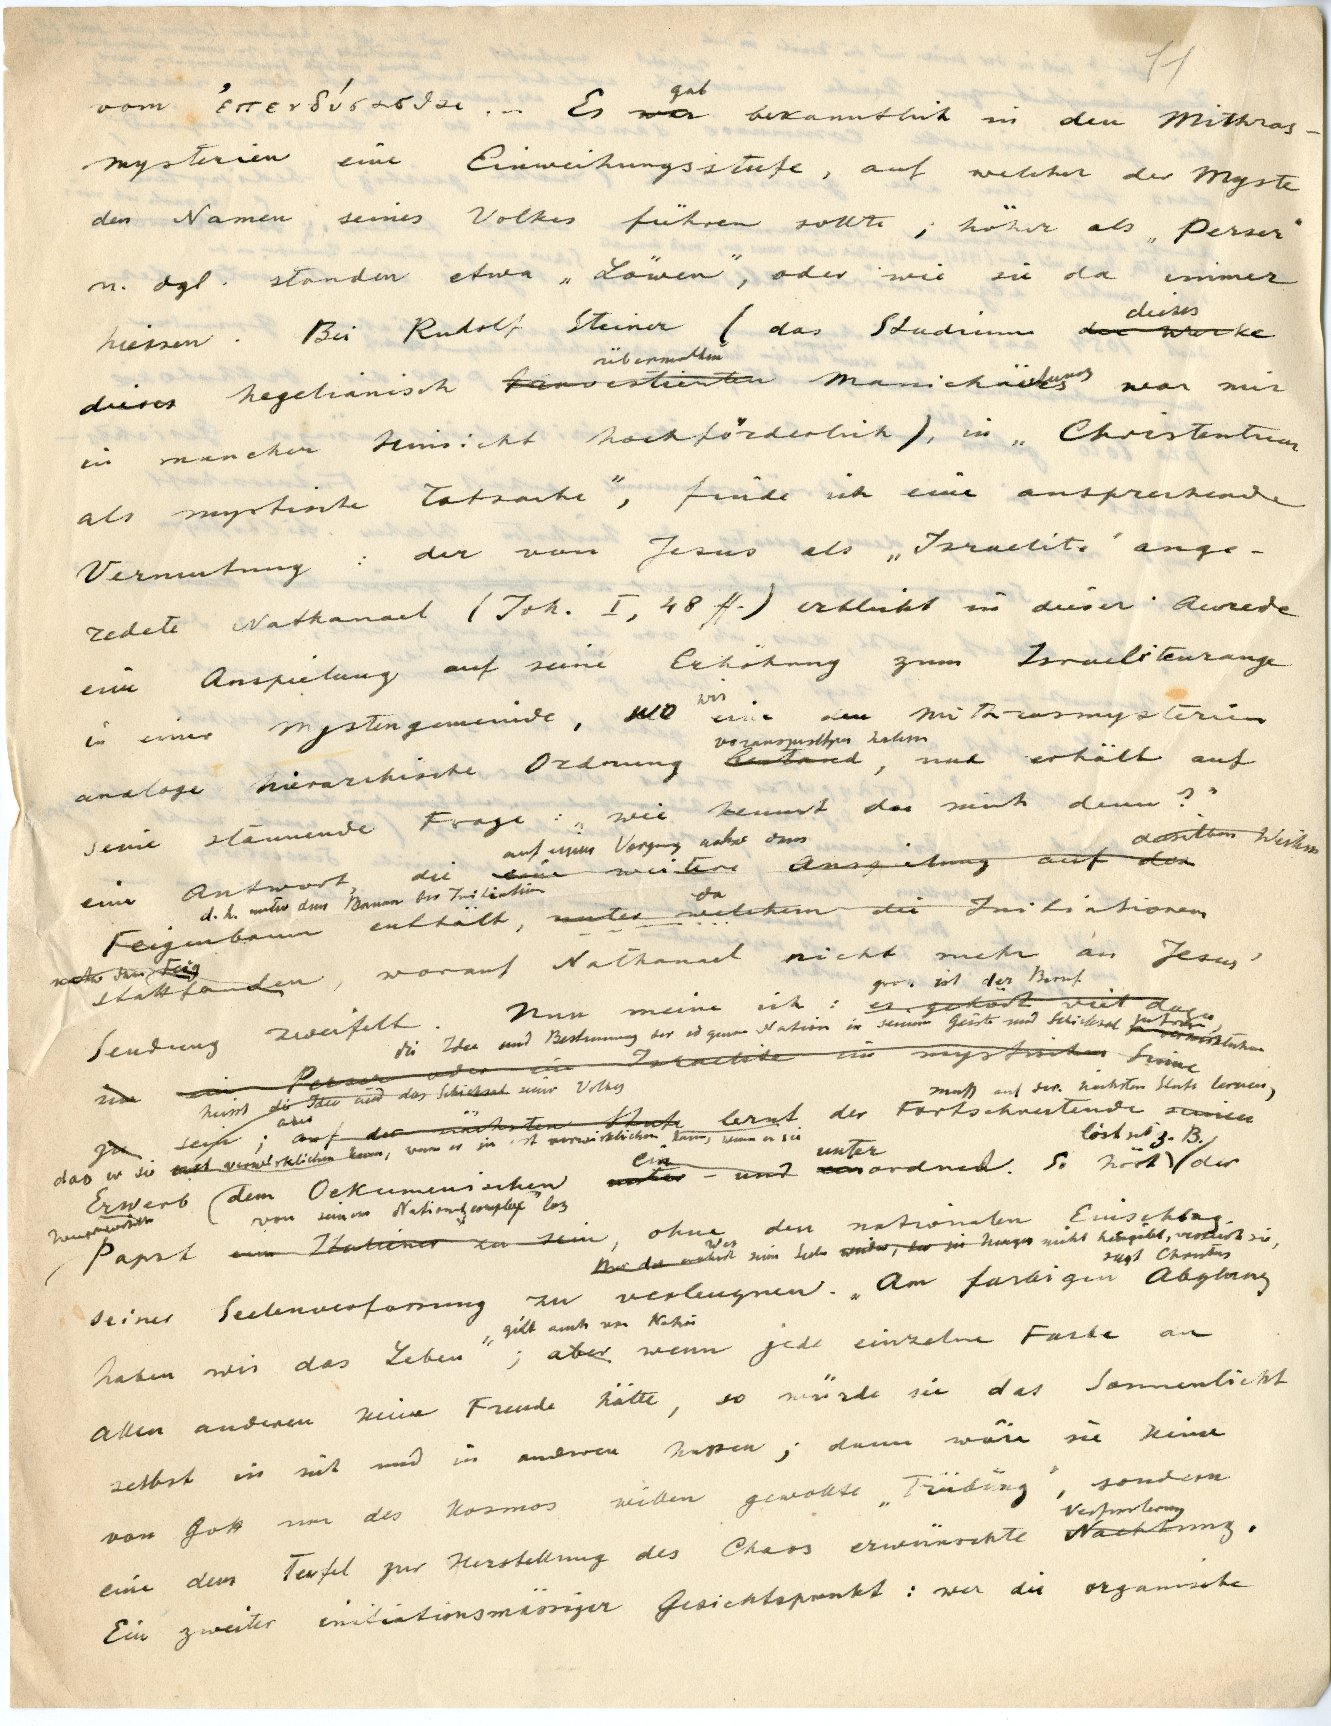 11
vom ἐπενδύσασθαι ... Es war gab bekanntlich in den Mithras-
mysterien eine Einweihungsstufe, auf welcher der Myste
den Namen seines Volkes führen sollte; höher als „Perser"
u. dgl. standen etwa „Löwen", oder wie sie da immer
hiessen. Bei Rudolf Steiner (das Studium der Werke dieses
dieses hegelianisch übermalten Manichäers war mir
in mancher Hinsicht hochförderlich), in „Christentum
als mystische Tatsache", finde ich eine ansprechende
Vermutung: der von Jesus als „Israelite" ange-
redete Nathanael (Joh. I, 48 ff.) erblickt in dieser Anrede
eine Anspielung auf seine Erhöhung zum Israelitenrange
in einer Mystengemeinde, wo wir eine den Mithrasmysterien
voranzusetzen haben
analoge hierarchische Ordnung bestand, und erhält auf
seine staunende Frage: „wie kennst du mich denn?"
auf einen Vorgang unter dem
eine Antwort, die eine weitere Anspielung auf den
d. h. unter dem Baum der Initiation
Feigenbaum enthält, unter welchem da die Initiationen
stattfanden, worauf Nathanael nicht mehr an Jesus'
ist der Beruf
Sendung zweifelt. Nun meine ich: es gehört viel dazu,
die Idee und Bestimmung der eigenen Nation in seinem Geiste und Schicksal zu verwirklichen
um ein Perser oder ein Israelite im mystischen Sinne
heisst die Idee und das Schicksal seines Volkes
muss auf der nächsten Stufe lernen,
zu sein; aber auf der nächsten Stufe lernt der Fortschreitende seinen
dass er sie erst verwirklichen kann, wenn er sie
löst sich z. B.
Erwerb dem Oekumenischen unter ein- und unterordned. So hört (der
von seinem Nationalcomplex los
Papst ein Italiener zu sein, ohne den nationalen Einschlag
Wer seine Seele nicht hingibt, verliert sie,
sagt Christus
seiner Seelenverfassung zu verleugnen. „Am farbigen Abglanz
gilt auch von Nation
haben wir das Leben"; aber wenn jede einzelne Farbe an
allen anderen keine Freude hätte, so würde sie das Sonnenlicht
selbst in sich und in anderen hassen; dann wäre sie keine
von Gott nur des Kosmos willen gewollte „Trübung", sondern
Verfinsterung
eine dem Teufel zur Herstellung des Chaos erwünschte Nachtung.
Ein zweiter initiationsmässiger Gesichtspunkt: wer die organische